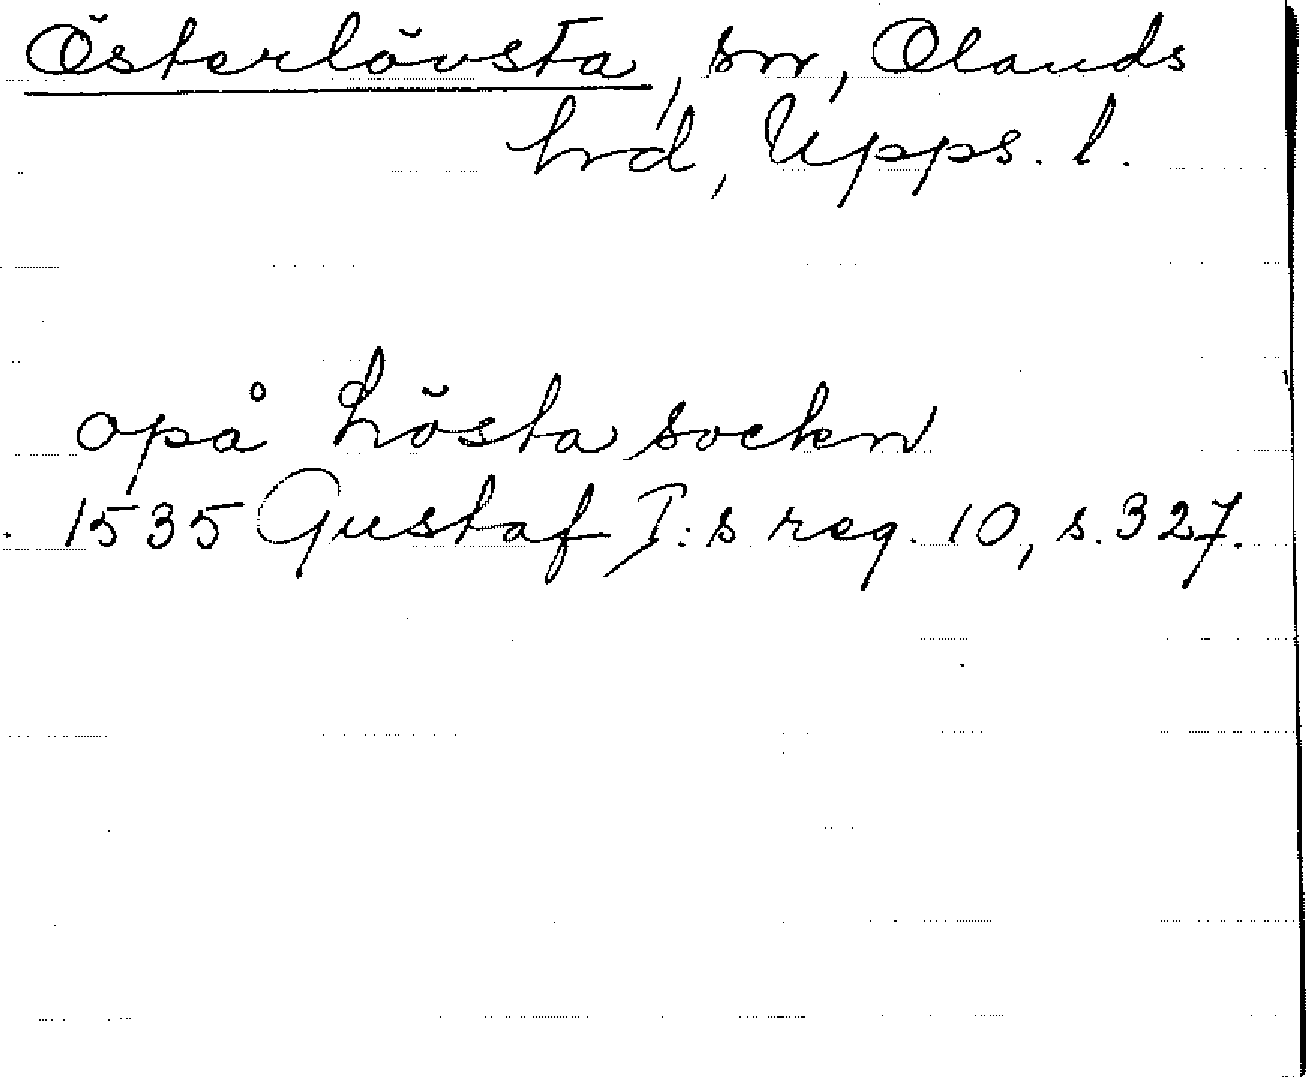 Österlövsta, sn, Olands
hrd, Upps. l.
opå Lösta sockn
1535 Gustaf I:s reg. 10, s. 327.